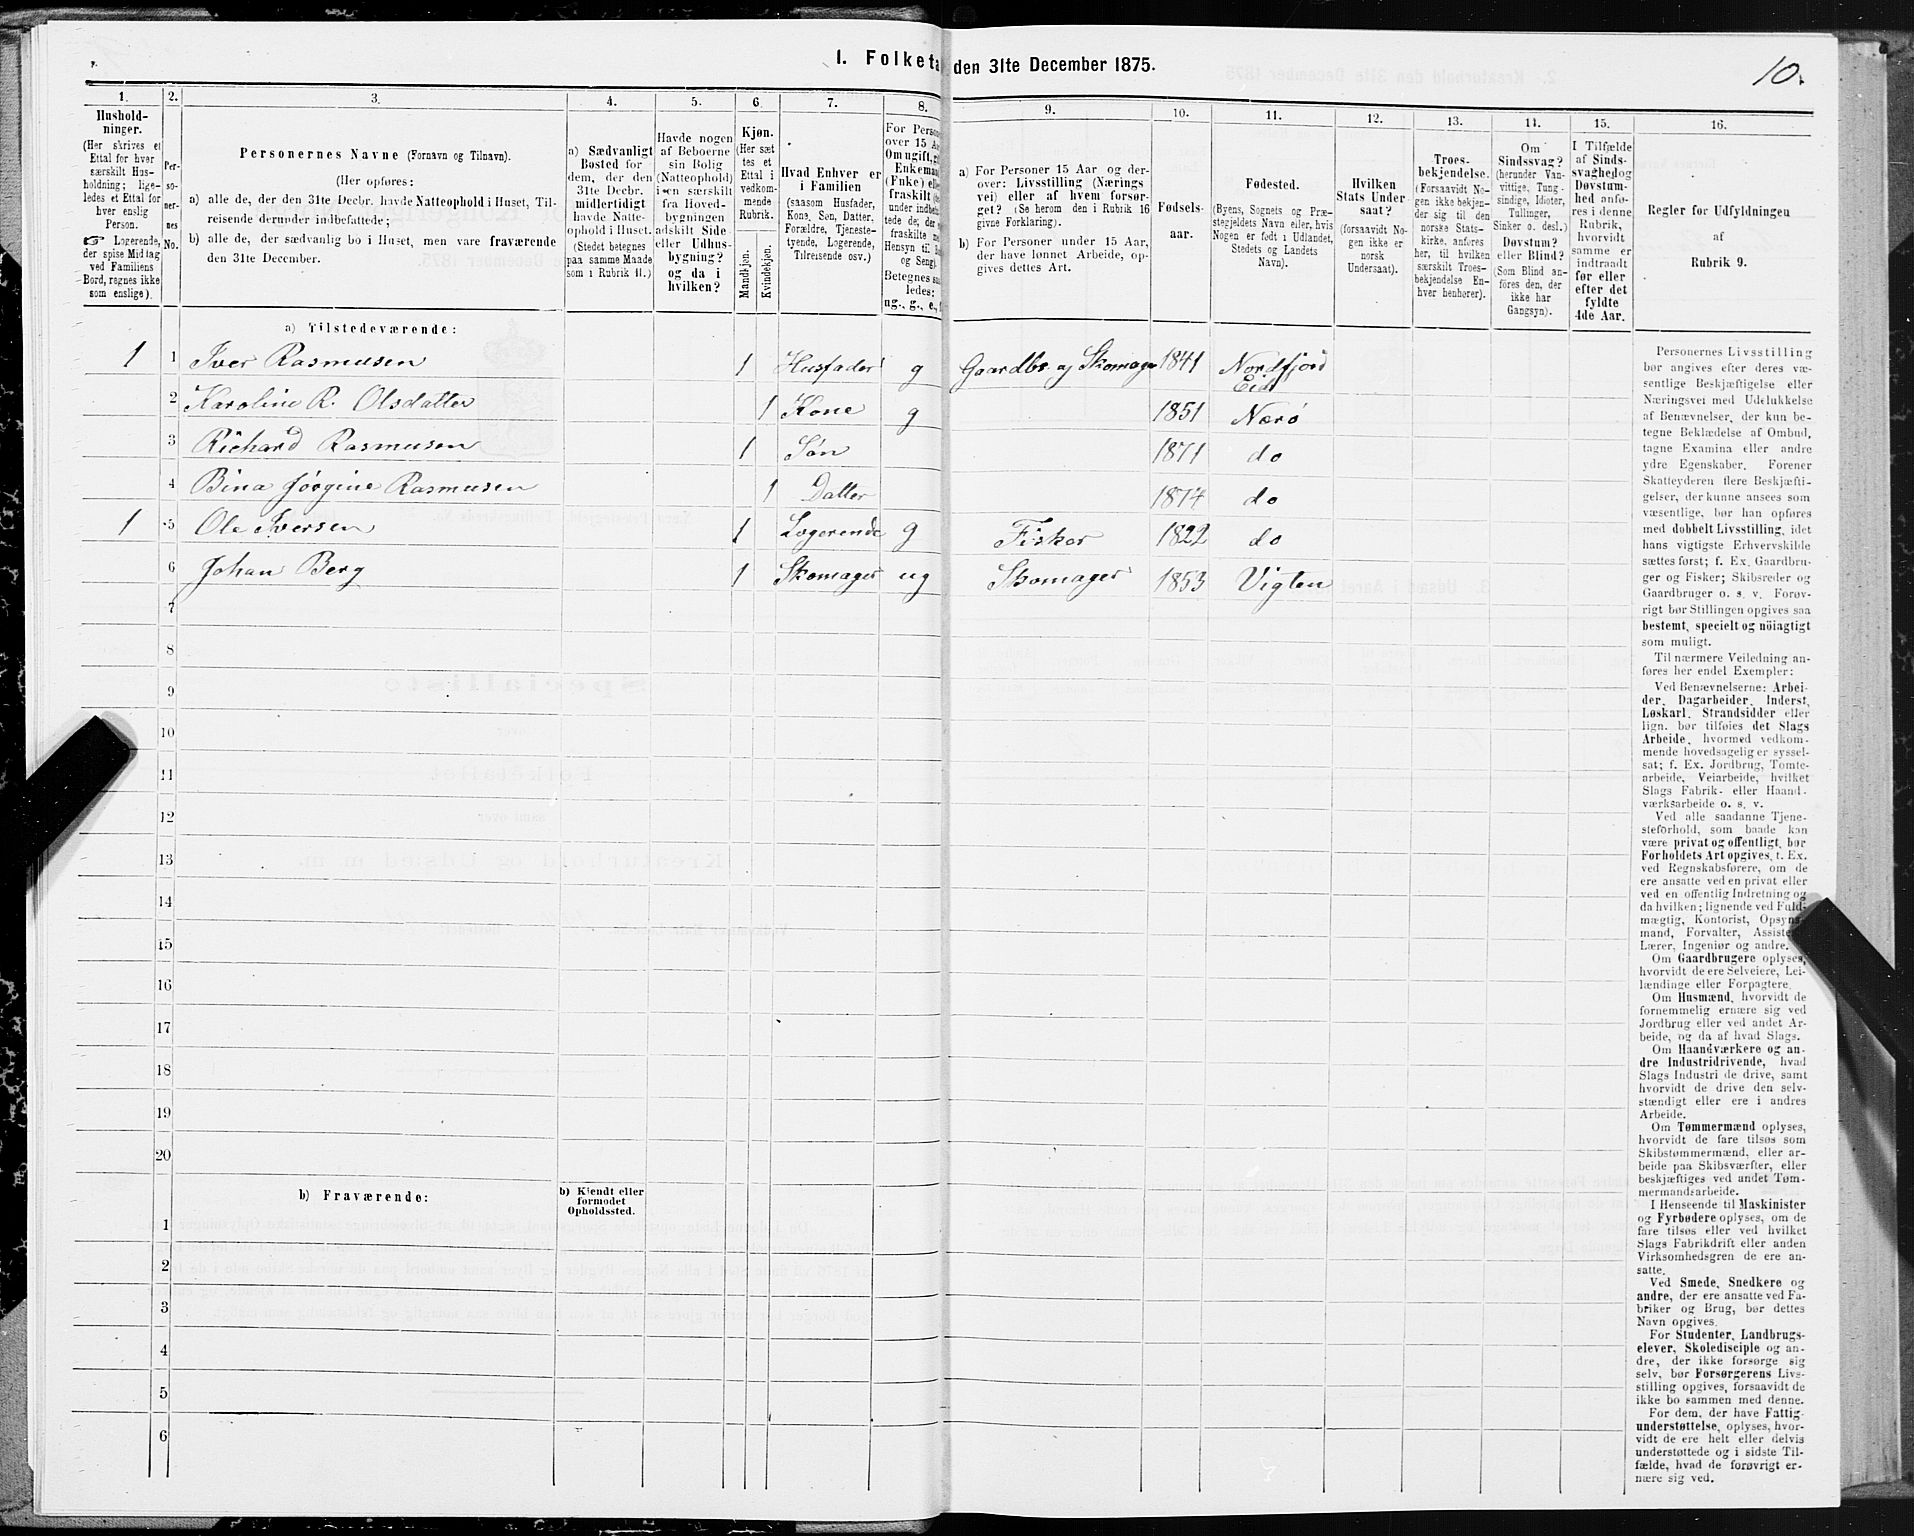 I. Folketa den 31te December 1875.
10.
1. 2. 3. 4. 5. 6. 7. 8. 9. 10. 11. 12. 13. 14. 15. 16.
Hushold-
ninger.
(Her skrives et
Ettal for hver
særskilt Hus-
holdning; lige-
ledes et Ettal for
hver enslig
Person.
☞ Logerende,
der spise Middag
ved Familiens
Bord, regnes ikke
som enslige).
Per-
so-
ner-
nes
No.
Personernes Navne (Fornavn og Tilnavn).
(Her opføres:
a) alle de, der den 31te Decbr. havde Natteophold i Huset, Til-
reisende derunder indbefattede;
b) alle de, der sædvanlig bo i Huset, men vare fraværende
den 31te December.
a) Sædvanligt
Bosted for
dem, der den
31te Decbr.
midlertidigt
havde Natte-
ophold i Huset.
(Stedet betegnes
paa samme Maade
som i Rubrik 11.)
Havde nogen
af Beboerne
sin Bolig
(Natteophold)
i en særskilt
fra Hoved-
bygningen
adskilt Side-
eller Udhus-
bygning?
og da i
hvilken?
Kjøn.
(Her sæt
tes et
Ettal i
vedkom-
mende
Rubrik.
Mandkjøn.
Kvindekjøn.
Hvad Enhver er
i Familien
(saasom Husfader,
Kone, Søn, Datter,
Forældre, Tjeneste-
tyende, Logerende,
Tilreisende osv.)
For Perso
over 15 A
Om ugift, gi
Enkeman
(Enke) ell
fraskilt
under indbe
tede de; der
fraskilte m
Hensyn til B
og Seng).
Betegnes sa
ledes:
ug., g., e.,
a) For Personer 15 Aar og der-
over: Livsstilling (Nærings
vei) eller af hvem forsør-
get? (Se herom den i Rubrik 16
givne Forklaring).
b) For Personer under 15 Aar,
der have lønnet Arbeide, op-
gives dettes Art.
Fødsels-
aar.
Fødested.
(Byens, Sognets og Præ-
stegjeldets Navn eller, hvis
Nogen er født i Udlandet,
Stedets og Landets
Navn).
Hvilken
Stats Under
saat?
(forsaavidt No-
gen ikke er
norsk
Undersaat).
Troes-
bekjendelse.
(Forsaavidt No-
gen ikke bekjen-
der sig til den
norske Stats-
kirke, anføres
her, til hvilken
særskilt Troes-
bekjendelse En-
hver henhører).
Om
Sindssvag?
(herunder Van-
vittige, Tung-
sindige, Idioter,
Tullinger,
Sinker o. desl.)
Døvstum?
eller Blind?
(Som Blind an-
føres den, der
ikke har
Gangsyn).
I Tilfælde
af Sinds-
svaghed og
Døvstum-
hed anfø-
res i denne
Rubrik,
hvorvidt
samme er
indtraadt
før eller
efter det
fyldte
4de Aar.
Regler for Udfyldningen
af
Rubrik 9.
a) Tilstedeværende:
1 1 Iver Rasmusen 1 Husfader g Gaardbr og Skomager 1841 Nordfjord
Eid
2 Karoline R. Olsdatter 1 Kone g 1851 Nærø
3 Richard Rasmusen 1 Søn 1871 do
4 Bina Jørgine Rasmusen 1 Datter 1874 do
1 5 Ole Iversen 1 Logerende g Fisker 1822 do
6 Johan Berg 1 Skomager ug Skomager 1853 Vigten
7
8
9
10
11
12
13
14
15
16
17
18
19
20
b) Fraværende:
b) Kjendt eller
formodet
Opholdssted.
1
2
3
4
5
6
Personernes Livsstilling
bør angives efter deres væ-
sentlige Beskjæftigelse eller
Næringsvei med Udelukkelse
af Benævnelser, der kun be-
tegne Beklædelse af Ombud,
tagne Examina eller andre
ydre Egenskaber. Forener
Skatteyderen flere Beskjæfti-
gelser, der kunne ansees som
væsentlige, bør han opføres
med dobbelt Livsstilling, idet
hans vigtigste Erhvervskilde
sættes først; f. Ex. Gaardbru-
ger og Fisker; Skibsreder og
Gaardbruger o. s. v. Forøv-
rigt bør Stillingen opgives saa
bestemt, specielt og nöiagtigt
som muligt.
Til nærmere Veiledning an-
føres her endel Exempler:
Ved Benævnelserne: Arbei-
der, Dagarbeider, Inderst,
Løskarl, Strandsidder eller
lign. bør tilføies det Slags
Arbeide, hvormed vedkom-
mende hovedsagelig er syssel-
sat; f. Ex. Jordbrug, Tomte-
arbeide, Veiarbeide, hvilket
Slags Fabrik- eller Haand-
værksarbeide o. s. v.
Ved alle saadanne Tjene-
steforhold, som baade kan
være privat og offentligt, bør
Forholdets Art opgives, t. Ex.
ved Regnskabsførere, om de
ere ansatte ved en privat eller
ved en offentlig Indretning og
da hvilken; lignende ved Fuld-
mægtig, Kontorist, Opsyns-
mand, Forvalter, Assiste
Lærer, Ingeniør og andre.
Om Gaardbrugere oplyses,
hvorvidt de ere Selveiere, Lei-
lændinge eller Forpagtere.
Om Husmænd, hvorvidt de
fornemmelig ernære sig ved
Jordbrug eller ved andet Ar-
beide, og da af hvad Slags.
Om Haandværkere og an-
dre Industridrivende, hvad
Slags Industri de drive, samt
hvorvidt de drive den selv-
stændigt eller ere i andres
Arbeide.
Om Tømmermænd oplyses,
hvorvidt de fare tilsøs som
Skibstømmermænd, eller ar-
beide paa Skibsværfter, eller
beskjæftiges ved andet Tøm-
mermandsarbeide.
I Henseende til Maskinister
og Fyrbødere oplyses, om de
fare tilsøs eller ved hvilket
Slags Fabrikdrift eller anden
Virksomhedsgren de ere an-
satte.
Ved Smede, Snedkere og
andre, der ere ansatte ved Fa-
briker og Brug, bør dettes
Navn opgives.
For Studenter, Landbrugs-
elever, Skoledisciple og an-
dre, der ikke forsørge sig
selv, bør Forsørgerens Livs-
stilling opgives, forsaavidt de
ikke bo sammen med denne.
For dem, der have Fattig-
understøttelse, oplyses, hvor-
vidt de ere helt eller delvis
understøttede og i sidste Til-
fælde, hvad de forøvrigt er-
nære sig ved.